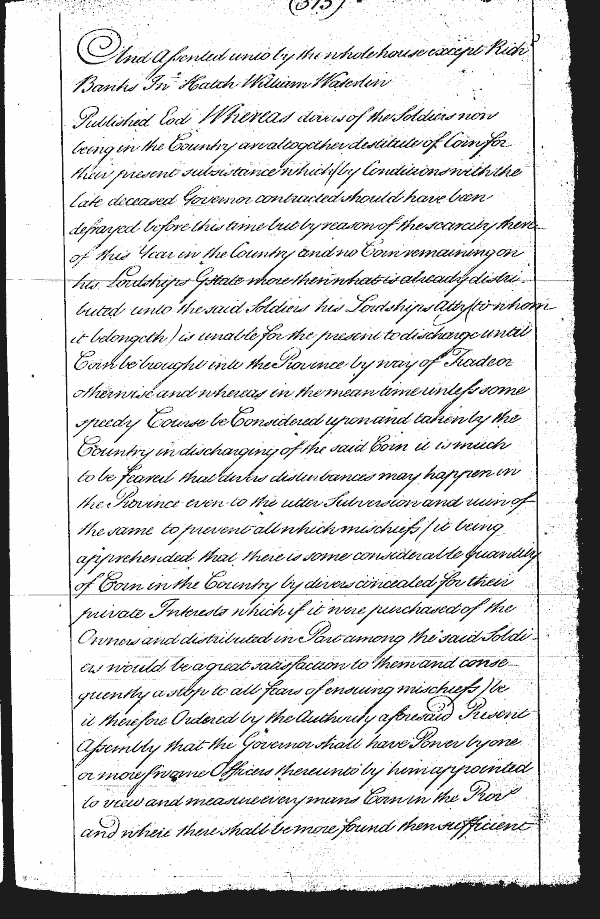 (313)
And Assented unto by the whole house except Rich^d
Banks Jn^o Hatch William Waterlin
Published Eod Whereas divers of the Soldiers now
being in the Country are altogether destitute of Corn for
their present subsistance which (by Conditions with the
late deceased Governor contracted should have been
defrayed before this time but by reason of the scarcity there-
of this Year in the Country and no Corn remaining on
his Lordships Estate more then what is already distri-
buted unto the said Soldiers his Lordships Att^y (to whom
it belongeth) is unable for the present to discharge until
Corn be brought into the Province by way of Trade or
otherwise and whereas in the mean time unless some
speedy Course be Considered upon and taken by the
Country in discharging of the said Corn it is much
to be feared that divers disturbances may happen in
the Province even to the utter Subversion and ruin of
the same to prevent all which mischiefs / it being
apprehended that there is some considerable quantity
of Corn in the Country by divers concealed for their
private Interests which if it were purchased of the
Owners and distributed in Part among the said Soldi-
ers would be a great satisfaction to them and conse-
quently a stop to all fears of ensuing mischiefs) be
it therefore Ordered by the Authority aforesaid Present
Assembly that the Governor shall have Power by one
or more Officers thereunto by him appointed
to view and measure every mans Corn in the Prov^e
and where there shall be more found then sufficient